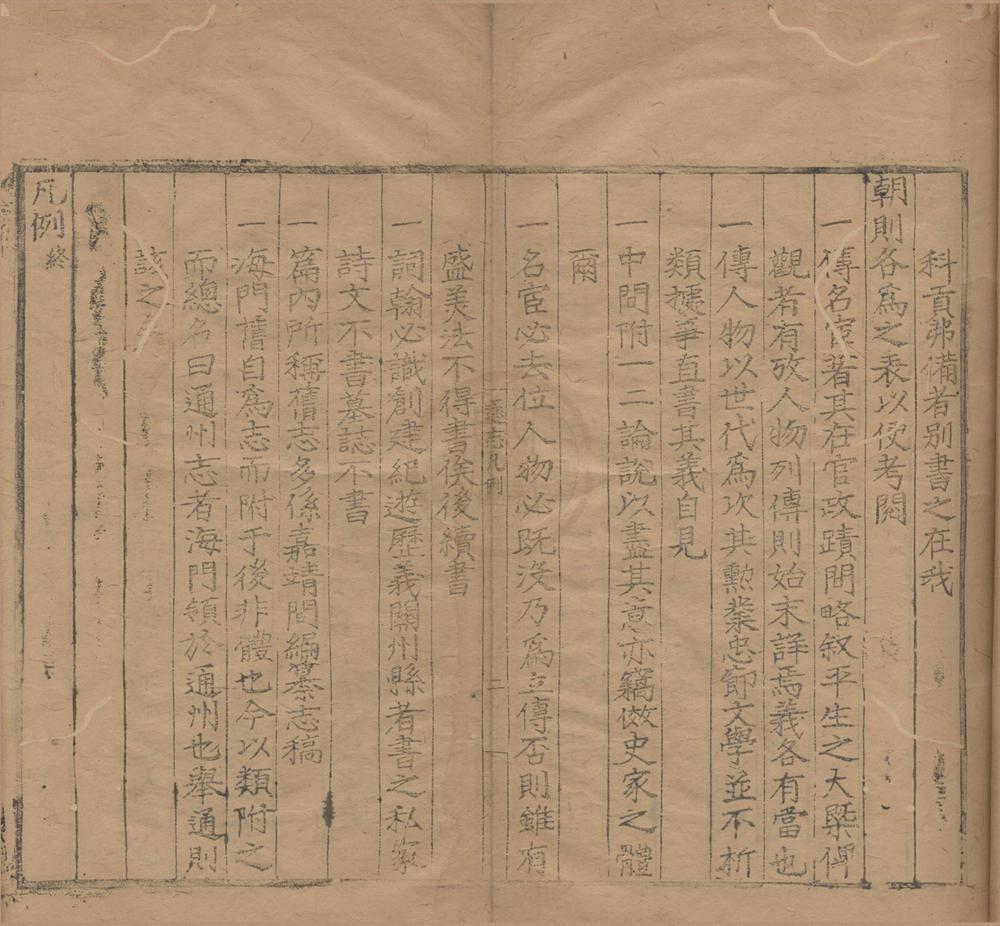 科貢弗備者别書之在我
朝則各爲之表以便考閱
一傳名宦著其在官政蹟間略叙平生之大槩俾
觀者有攷人物列傳則始末詳焉義各有當也
一傳人物以世代爲次其勲業忠節文學並不析
類據事直書其義自見
一中間附一二論說以盡其意亦竊倣史家之體
爾
一名宦必去位人物必既没乃爲立傳否則雖有
通志凡例 二
盛美法不得書俟後續書
一詞翰必識創建紀遊歷義關州縣者書之私家
詩文不書墓誌不書
一篇内所稱舊志多係嘉靖間編纂志稿
一海門舊自爲志而附于後非體也今以類附之
而總名曰通州志者海門領於通州也舉通則
該之
凡例終